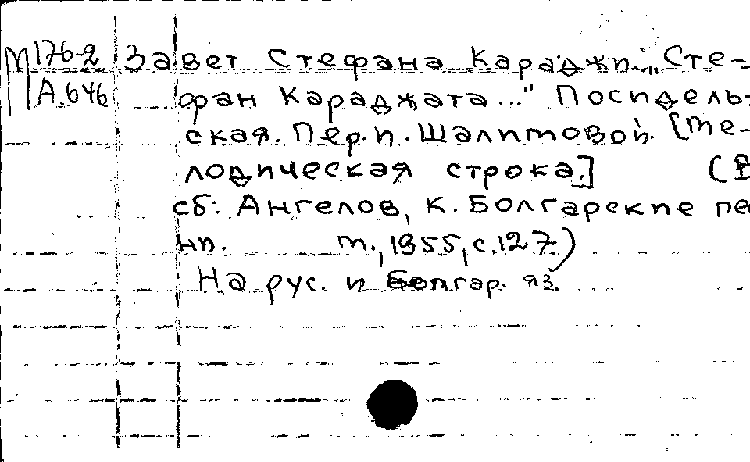 М 176-2 Завет Стефана Караджи. „Сте-
А.646 фан Караджата..." Посидель-
ская. Пер. И. Шалитовой. [Ме-
лодическая строка.] (В
сб: Ангелов, К. Болгарские пе
ни. М., 1955, с. 127.)
На рус. и болгар. яз.